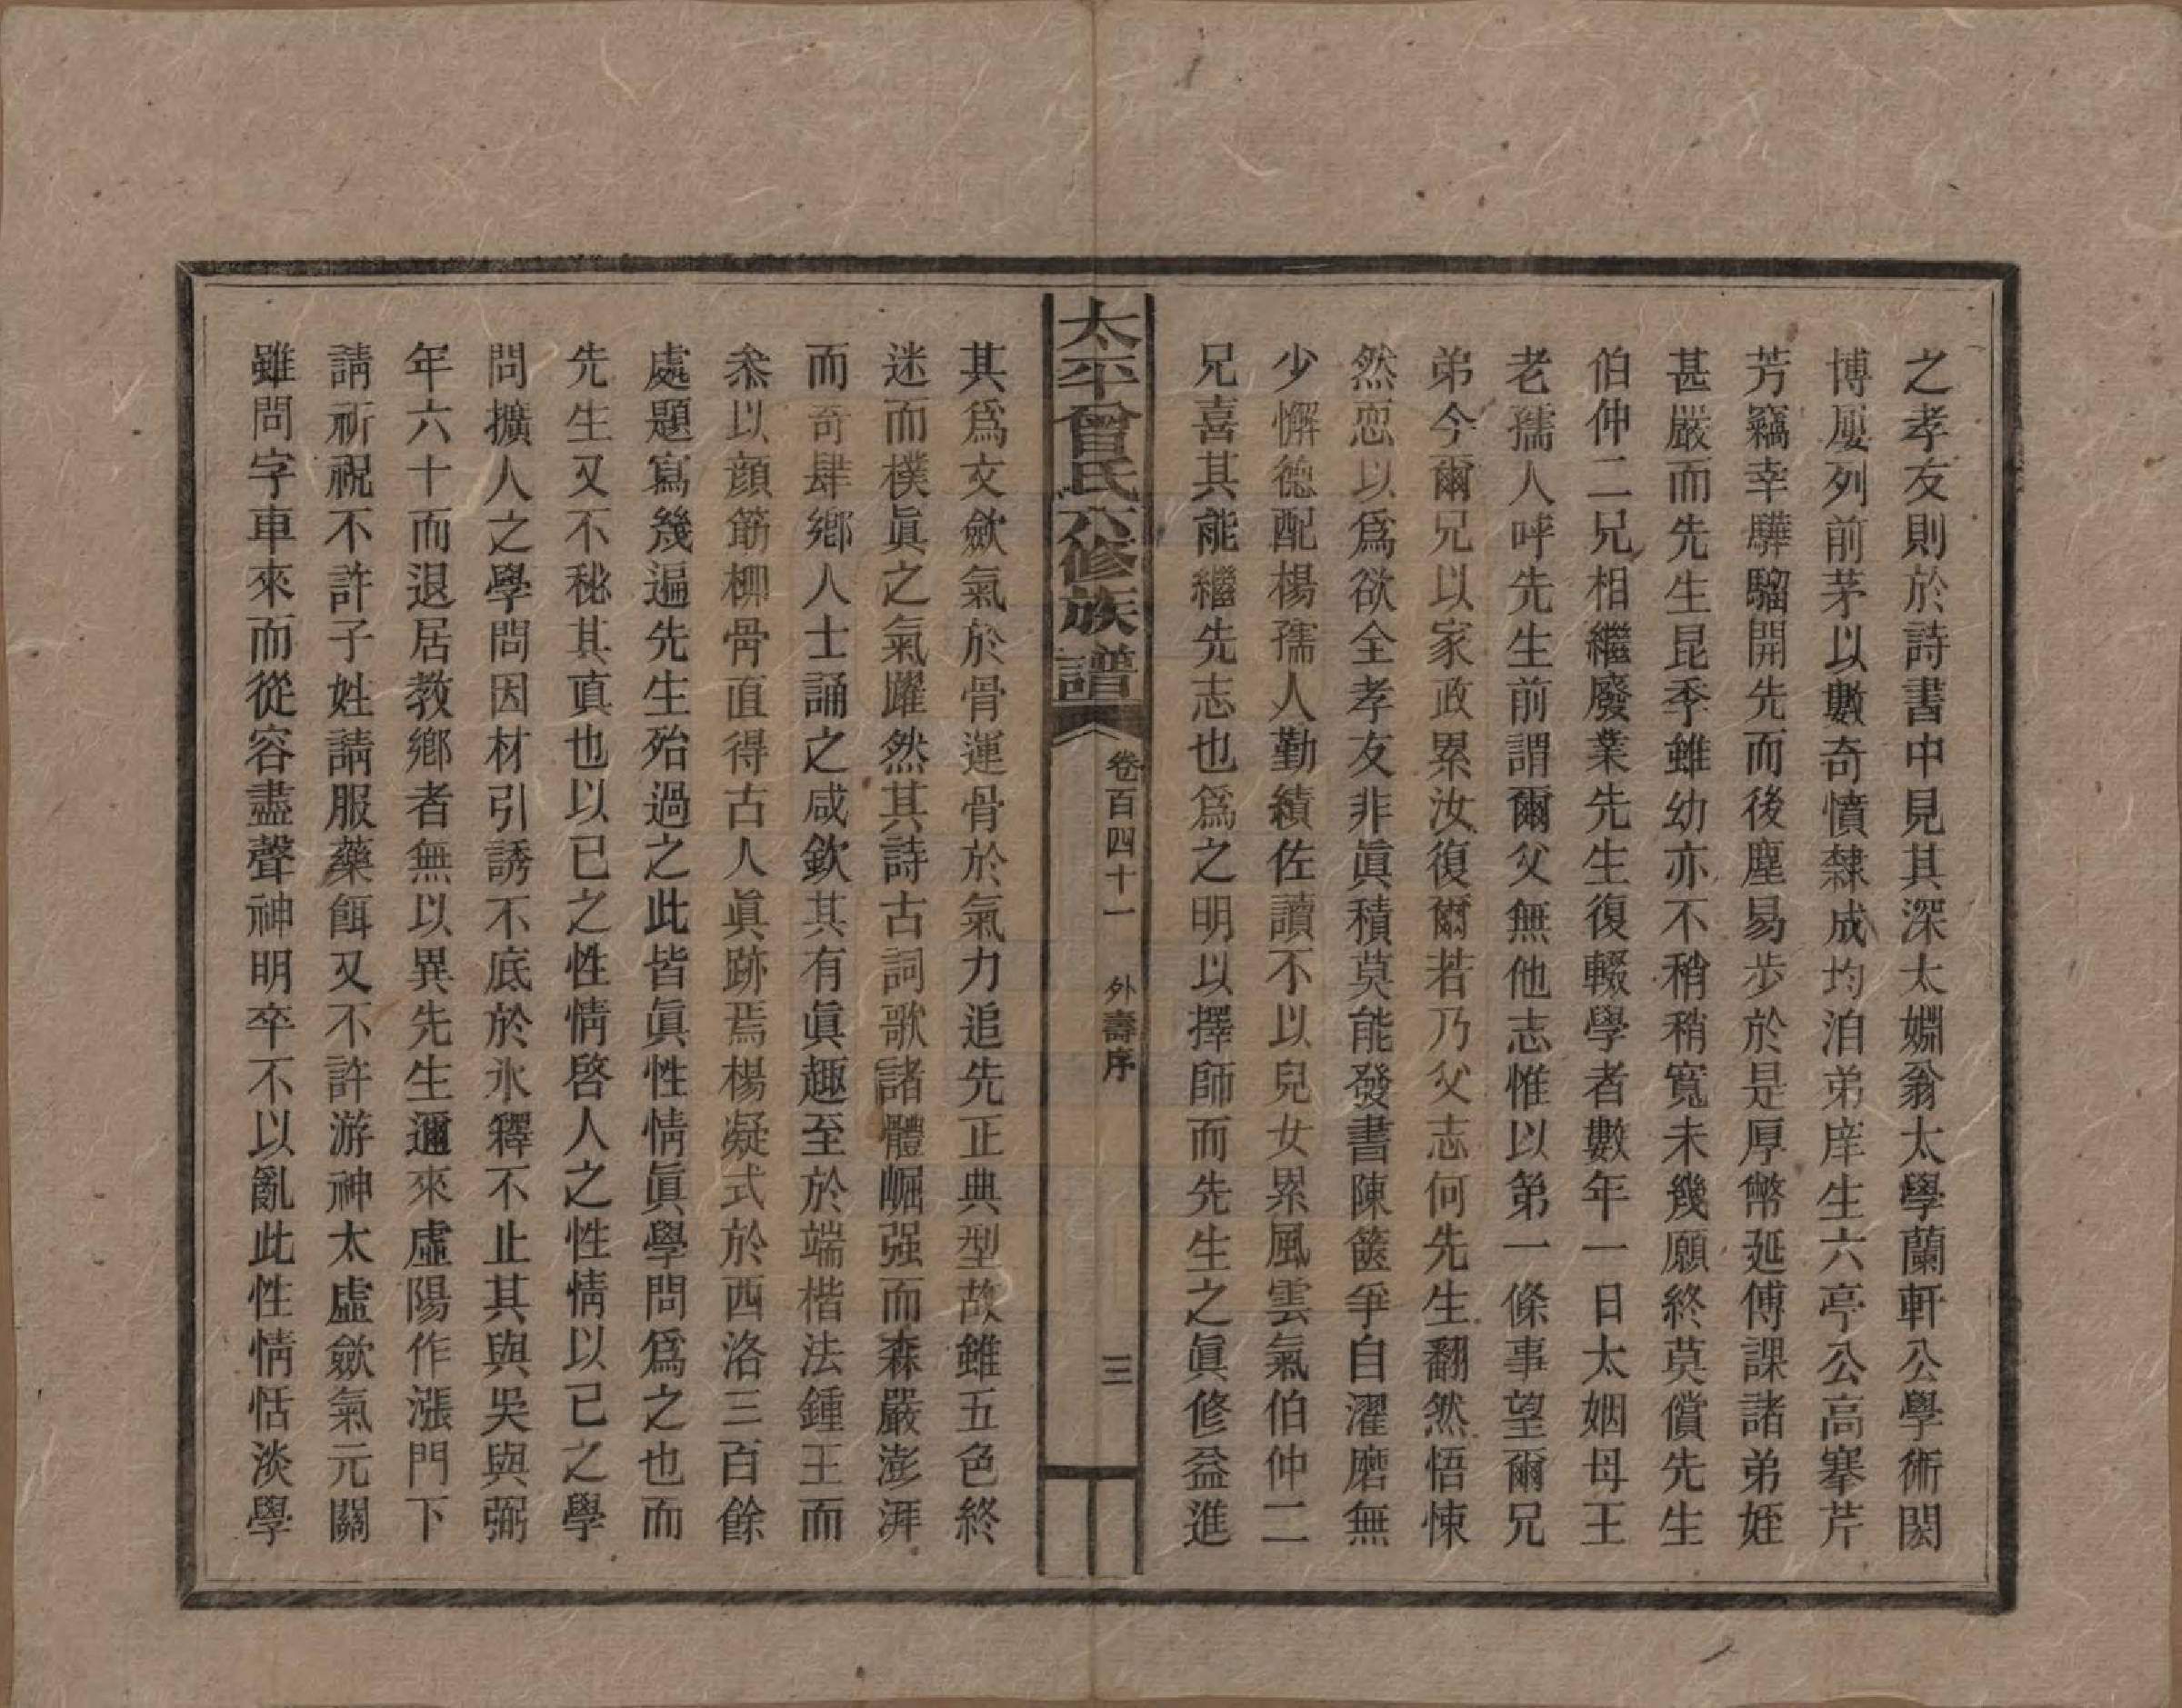 之孝友則於詩書中見其深太姻翁太學蘭軒公學術閎
博屢列前茅以數奇憤隸成均洎弟庠生六亭公高搴芹
芳竊幸驊騮開先而後塵易步於是厚幣延傅課諸弟姪
甚嚴而先生昆季雖幼亦不稍稍寬未幾願終莫償先生
伯仲二兄相繼廢業先生復輟學者數年一日太姻母王
老孺人呼先生前謂爾父無他志惟以第一條事望爾兄
弟今爾兄以家政累汝復爾若乃父志何先生翻然悟悚
然恧以為欲全孝友非眞積莫能發書陳篋爭自濯磨無
少懈德配楊孺人勤績佐讀不以兒女累風雲氣伯仲二
兄喜其能繼先志也爲之明以擇師而先生之眞修益進
太平曾氏六修族譜
卷百四十一 外壽序 三
其爲文歛氣於骨運骨於氣力追先正典型故雖五色終
迷而樸眞之氣躍然其詩古詞歌諸體崛强而森嚴澎湃
而奇肆鄉人士誦之咸欽其有眞趣至於端楷法鍾王而
叅以顔筋柳骨直得古人眞跡焉楊凝式於西洛三百餘
處題寫幾遍先生殆過之此皆眞性情眞學問爲之也而
先生又不秘其眞也以已之性情啓人之性情以已之學
問擴人之學問因材引誘不底於氷釋不止其與吳與弼
年六十而退居教鄉者無以異先生邇來虛陽作漲門下
請祈祝不許子姓請服藥餌又不許游神太虛歛氣元關
雖問字車來而從容盡聲神明卒不以亂此性情恬淡學